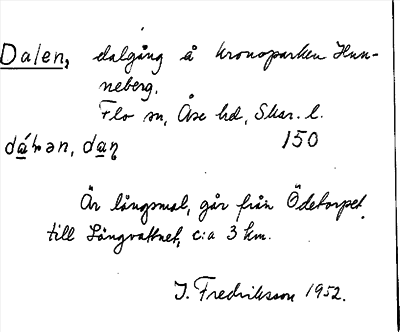 Dalen, dalgång å kronoparken Hun-
neberg.
Flo sn, Åse hd, Skar. l.
150
Är långsmal, går från Ödetorpet
till Långvattnet, c:a 3 km.
I. Fredriksson 1952.